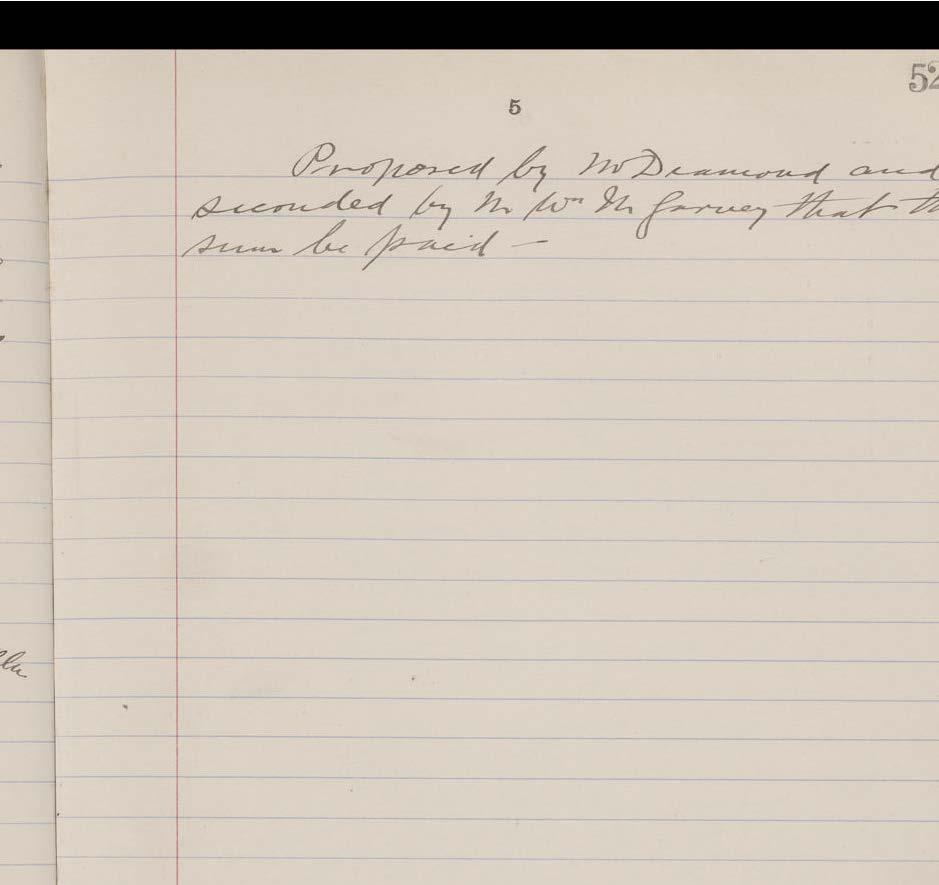 52
5
Proposed by Mr Diamond and
seconded by Mr Wm McGarvey that th
sum be paid —